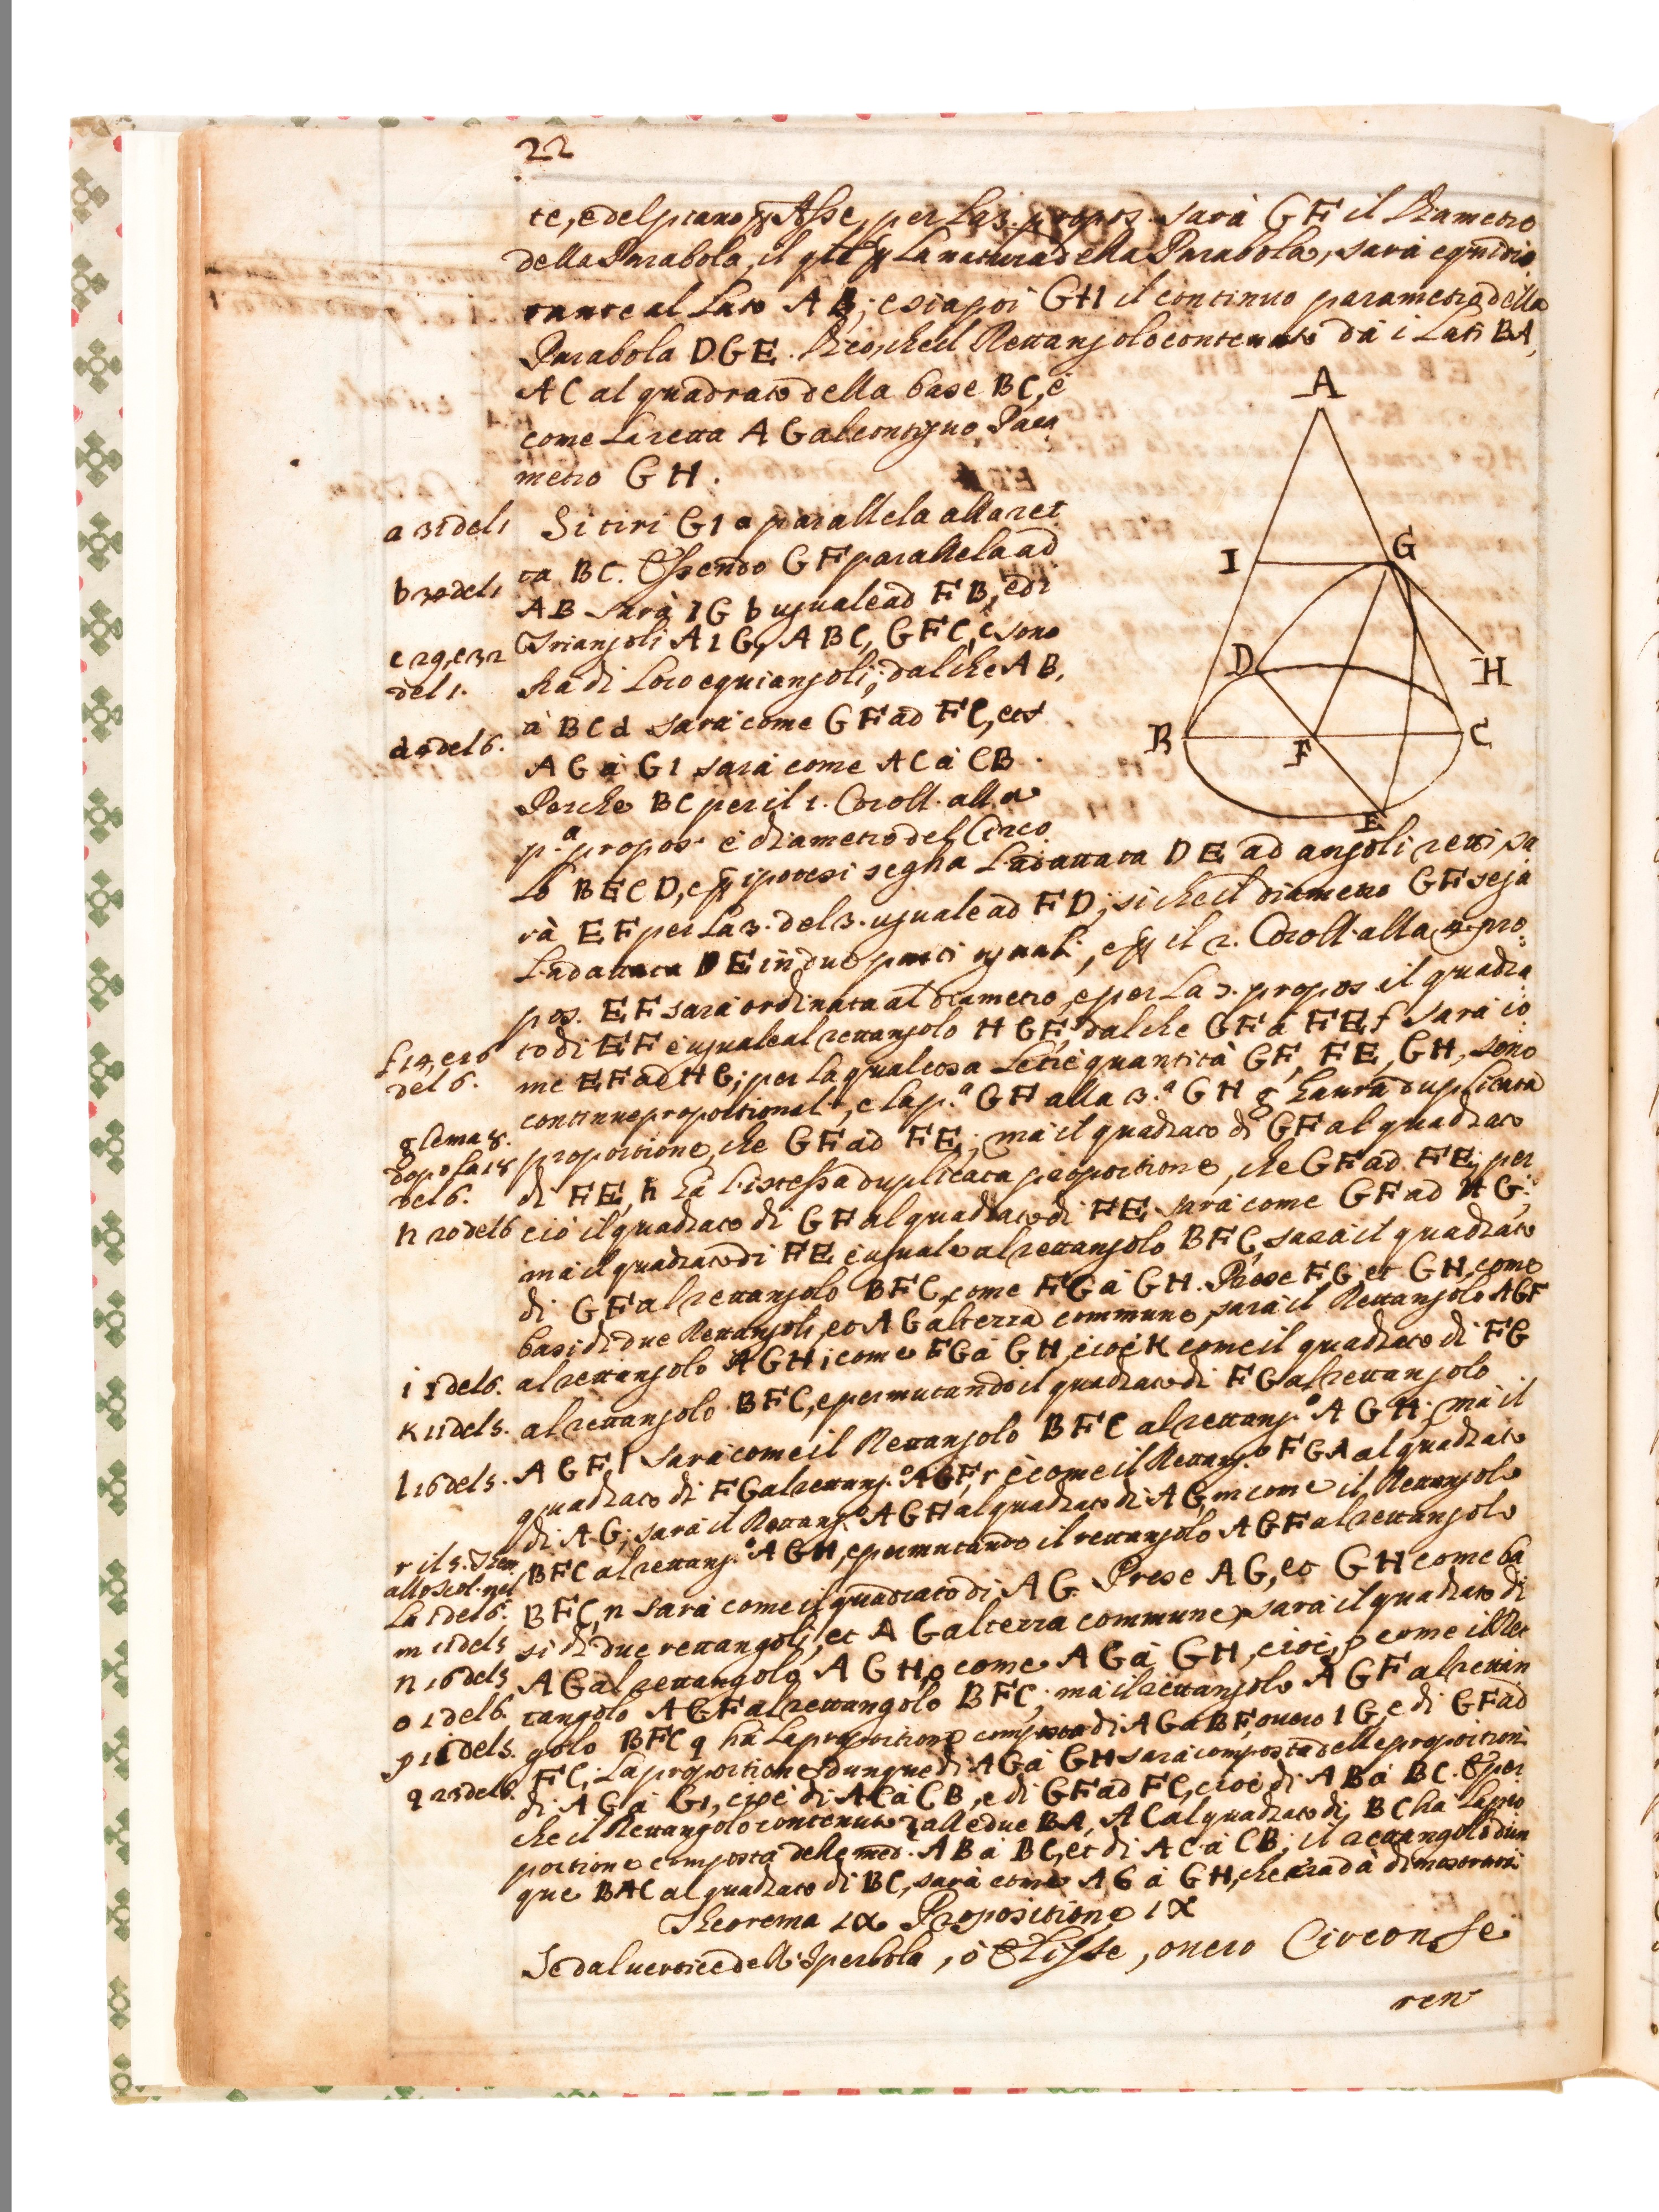 22
te, e del piano p Asse, per la 3. propos. sarà GF il Diametro
della Parabola, il qle p la natura della Parabola, sarà equidis
tante al Lato AB; e sia poi GH il continuo parametro della
Parabola DGE. Dico, che il Rettangolo contenuto dà i Lati BA,
AC al quadrato della base BC, è
come la retta AG al contiguo Para
metro GH.
a 31 del 1
Si tiri GI a parallela alla ret
ta BC. Essendo GF parallela ad
b 34 del 1
AB sarà IG b uguale ad FB, ed i
c 29, e 32
del 1.
Triangoli AIG, ABC, GFC, c sono
frà di Loro equiangoli; dal che AB,
d 4 del 6.
à BC d sarà come GF ad FC, et
AG à GI sarà come AC à CB.
Perche BC per il 1. Coroll. alla
p.a propos. è diametro del Circo
lo BECD, e p ipotesi segha L'adattata DE ad angoli retti, sa
rà EF per la 3. del 3. uguale ad FD; si che il diametro GF sega
L'adattata DE in due parti uguali, e p il 2. Coroll. alla 4. pro
pos. EF sarà ordinata al diametro, e per la 3. propos il quadra
f 14, e 16
del 6.
to di EF è uguale al rettangolo HGF, dal che GF à FE f sarà co
me EF ad HG; per la qual cosa le trè quantità GF, FE, GH, sono
continue proportionali, e la p.a GF alla 3.a GH g haurà duplicata
g lema 8.
dopo la 18
del 6.
proportione, che GF ad FE; mà il quadrato di GF al quadrato
di FE, h hà l'istessa duplicata proportione, che GF ad FE; per
h 20 del 6
ciò il quadrato di GF al quadrato di FE sarà come GF ad HG;
mà il quadrato di FE è uguale al rettangolo BFC, sarà il quadrato
di GF al rettangolo BFC, come FG à GH. Prese FG, et GH, come
basi di due Rettangoli, et AG alterza commune, sarà il Rettangolo AGF
i 1 del 6.
al rettangolo AGH i come FG à GH, cioè K come il quadrato di FG
K 11 del 5.
al rettangolo BFC, e permutando il quadrato di FG al rettangolo
l 16 del 5.
AGF l sarà come il Rettangolo BFC al rettang.o AGH; mà il
quadrato di FG al rettang.o AGF, r è come il Rettang.o FGA al quadrato
di AG; sarà il Rettang.o AGF al quadrato di AG, m come il Rettangolo
r il 5. Theor
allo scol. nel
La 1 del 6.
BFC al rettang.o AGH, e permutando il rettangolo AGF al rettangolo
BFC, n sarà come il quadrato di AG. Prese AG, et GH come ba
m 11 del 5
si di due rettangoli, et AG alterza commune, sarà il quadrato di
n 16 del 5
AG al rettangolo AGH, o come AG à GH, cioè, p come il Ret
o 1 del 6.
tangolo AGF al rettangolo BFC; mà il rettangolo AGF al rettan
p 11 del 5.
golo BFC q hà la proportione composta di AG à BF, ouero IG, e di GF ad
q 23 del 6.
FC; La proportione dunque di AG à GH sarà composta delle proportioni
di AG à GI, cioè di AC à CB, e di GF ad FC, cioè di AB à BC. E per
che il Rettangolo contenuto dalle due BA, AC al quadrato di BC hà la pro
portione composta delle med. AB à BC, et di AC à CB; il rettangolo dun
que BAC al quadrato di BC, sarà come AG à GH, che era dà dimostrarsi
Theorema IX Propositione IX
Se dal uertice dell'Iperbola, ò Elisse, ouero Circonfe
ren
A
I
G
D
H
B
F
C
E